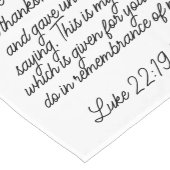 thanks
and gave un
saying. This is my
which is given for you
do in remembrance of m
Luke 22:19